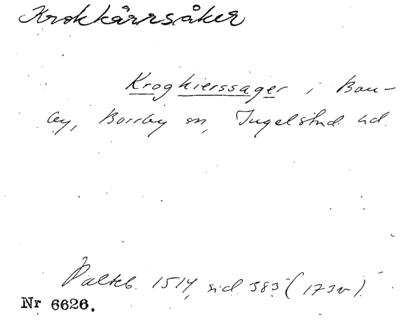 Krokkärrsåker
Kroghierssager i Bor-
by, Borrby sn, Ingelstad hd.
Palteb. 1514, sid. 383 (173v).
Nr 6626.